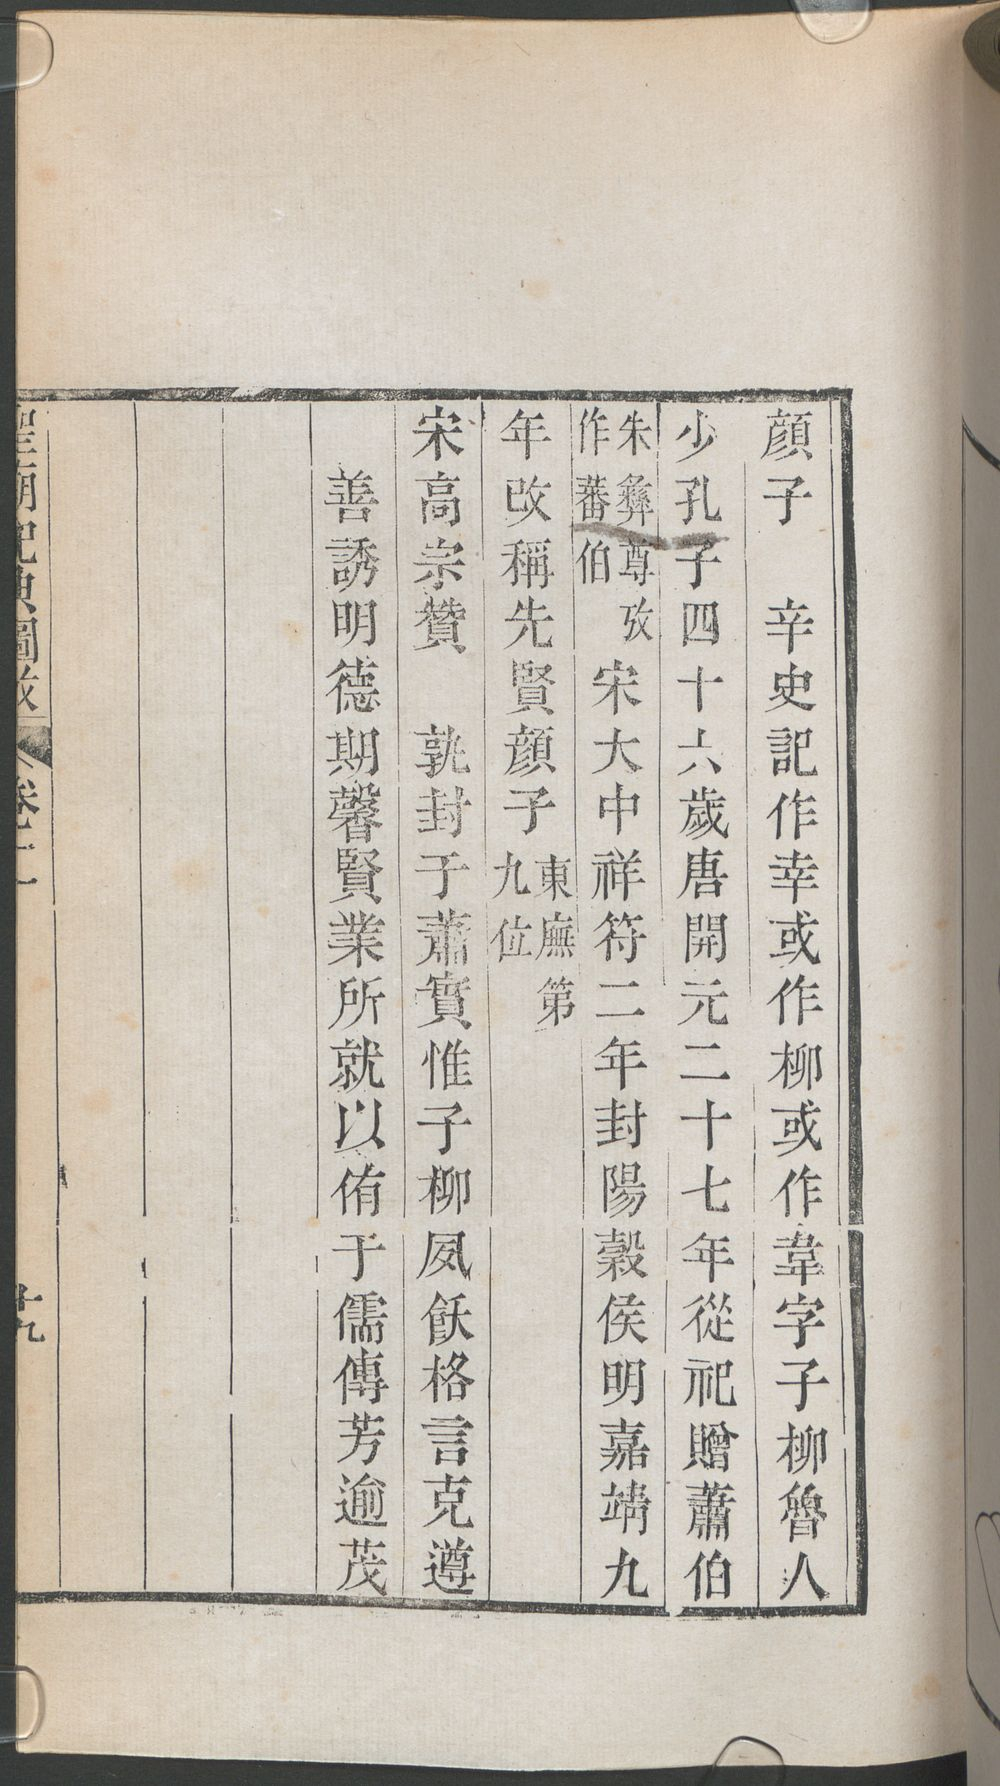 顔子　辛史記作幸或作柳或作韋字子柳魯人
少孔子四十六歲唐開元二十七年從祀贈蕭伯
朱彝尊攷
作蕃伯
宋大中祥符二年封陽穀侯明嘉靖九
年改稱先賢顔子
東廡第
九位
宋高宗贊　孰封于蕭實惟子柳夙飫格言克遵
善誘明德期馨賢業所就以侑于儒傳芳逾茂
聖廟祀典圖攷 卷二
十九